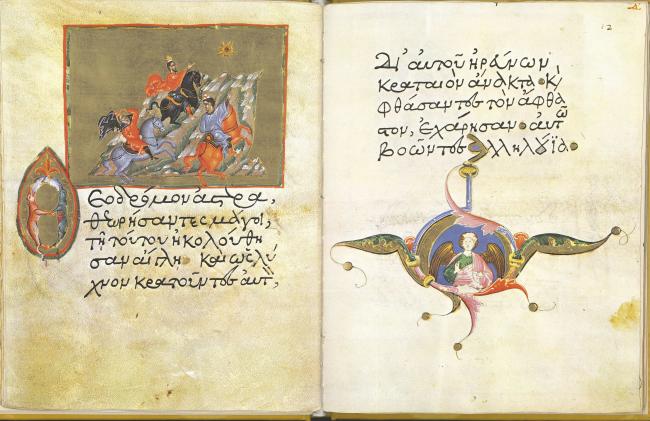 Θεοδρόμον ἀστέρα,
θεωρήσαντες μάγοι,
τῇ τούτου ἠκολούθη
σαν αἴγλῃ· καὶ ὡς λύ
χνον κρατοῦντες αὐτ,
12
Δι' αὐτοῦ ἠρεύνων
κραταιὸν ἄνακτα· κ
φθάσαντες τὸν ἄφθα
στον, ἐχάρησαν αὐτῶ
βοῶντες· ἀλληλούϊα·